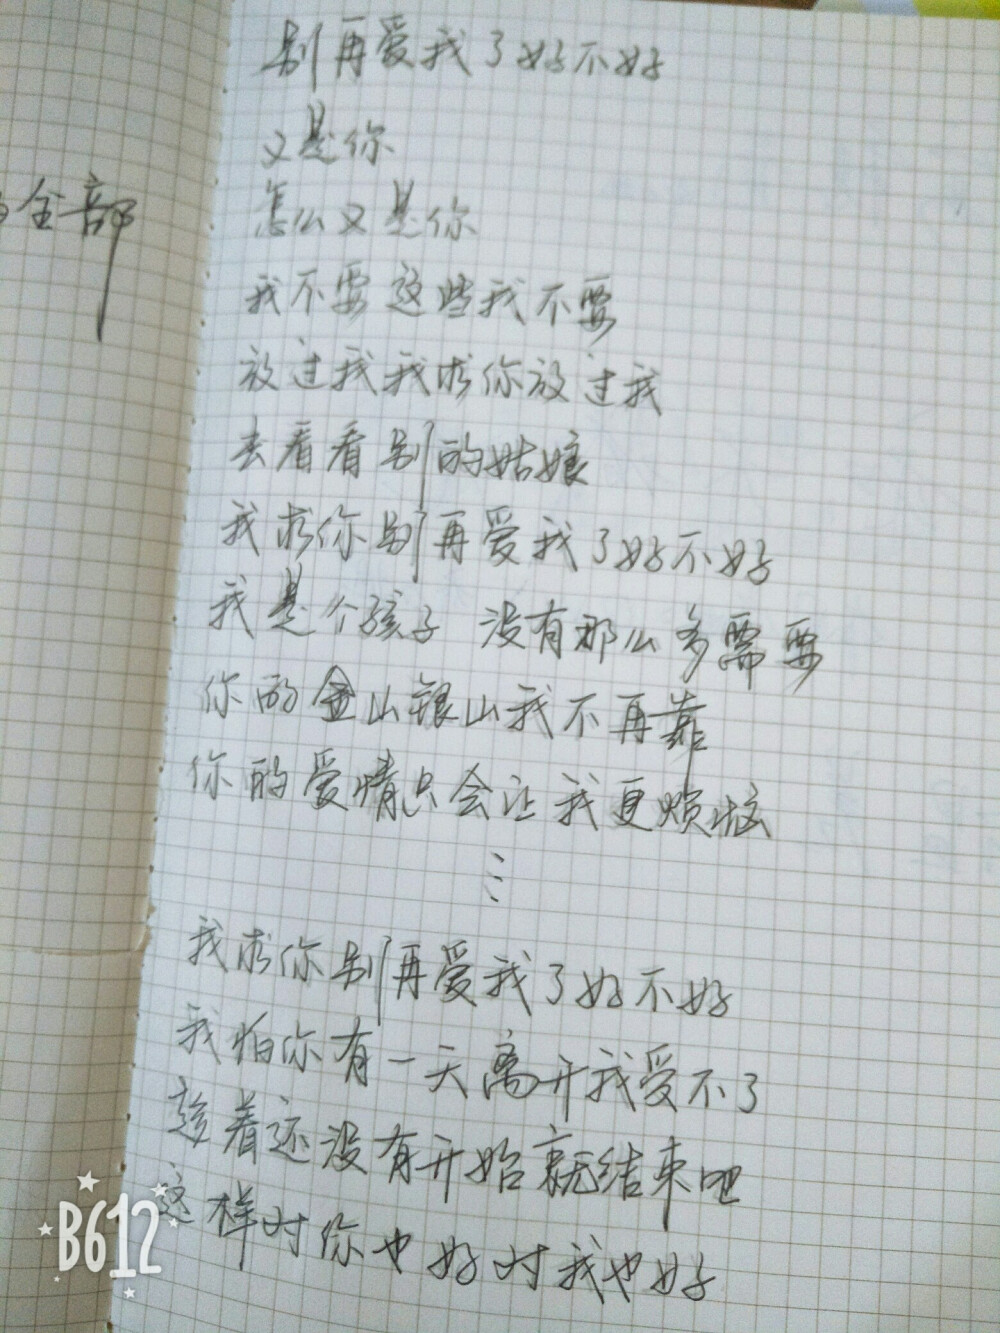 别再爱我了好不好
又是你
全部
怎么又是你
我不要这些我不要
放过我我求你放过我
去看看别的姑娘
我求你别再爱我了好不好
我是个孩子 没有那么多需要
你的金山银山我不再靠
你的爱情只会让我更烦恼
⋮
我求你别再爱我了好不好
我怕你有一天离开我受不了
趁着还没有开始就结束吧
这样对你也好对我也好
B612